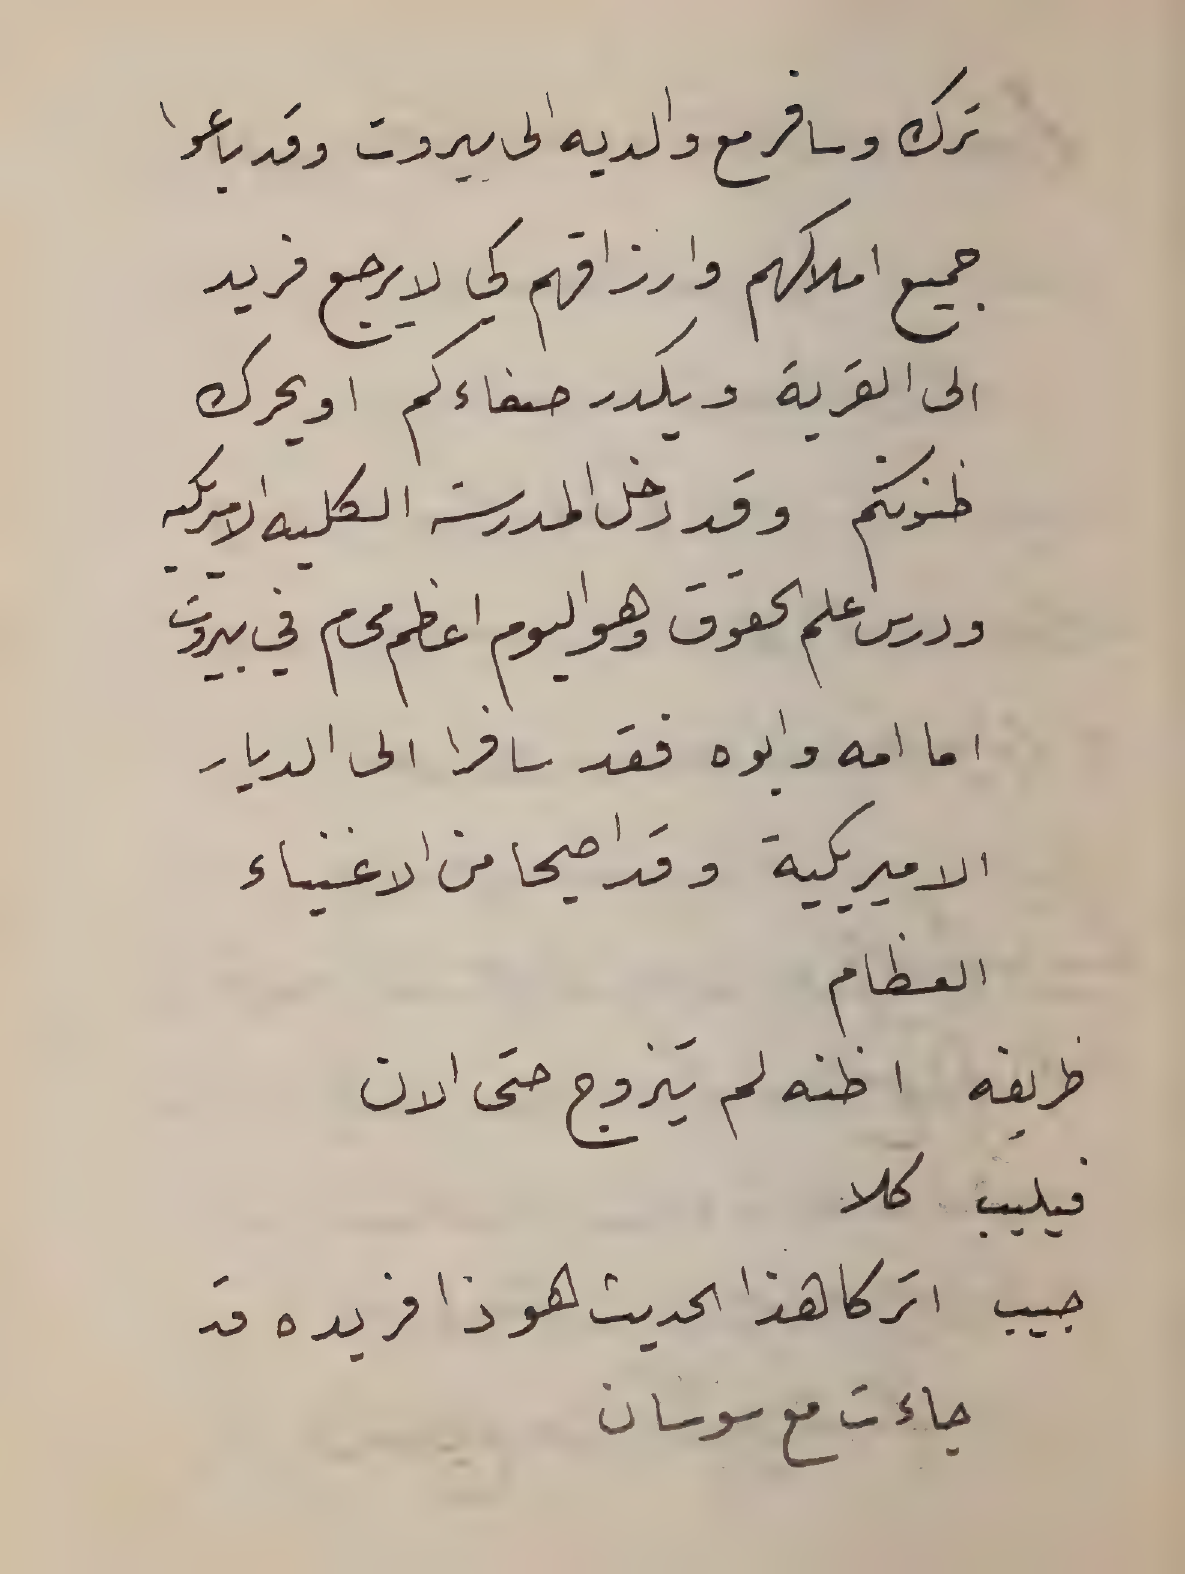 ترك وسافر مع والديه الى بيروت وقد باعوا
جميع املاكهم وارزاقهم كي لا يرجع فريد
الى القرية ويكدر صفاءكم او يحرك
ظنونكم وقد دخل المدرسة الكليه الاميركيه
ودرس علم الحقوق وهو اليوم اعظم محام في بيروت
اما امه وابوه فقد سافرا الى الديار
الاميريكية وقد اصبحا من الاغنياء
العظام
ظريفه اظنه لم يتزوج حتى الان
فيليب كلا
حبيب اتركا هذا الحديث لهوذا فريده قد
جاءت مع سوسان